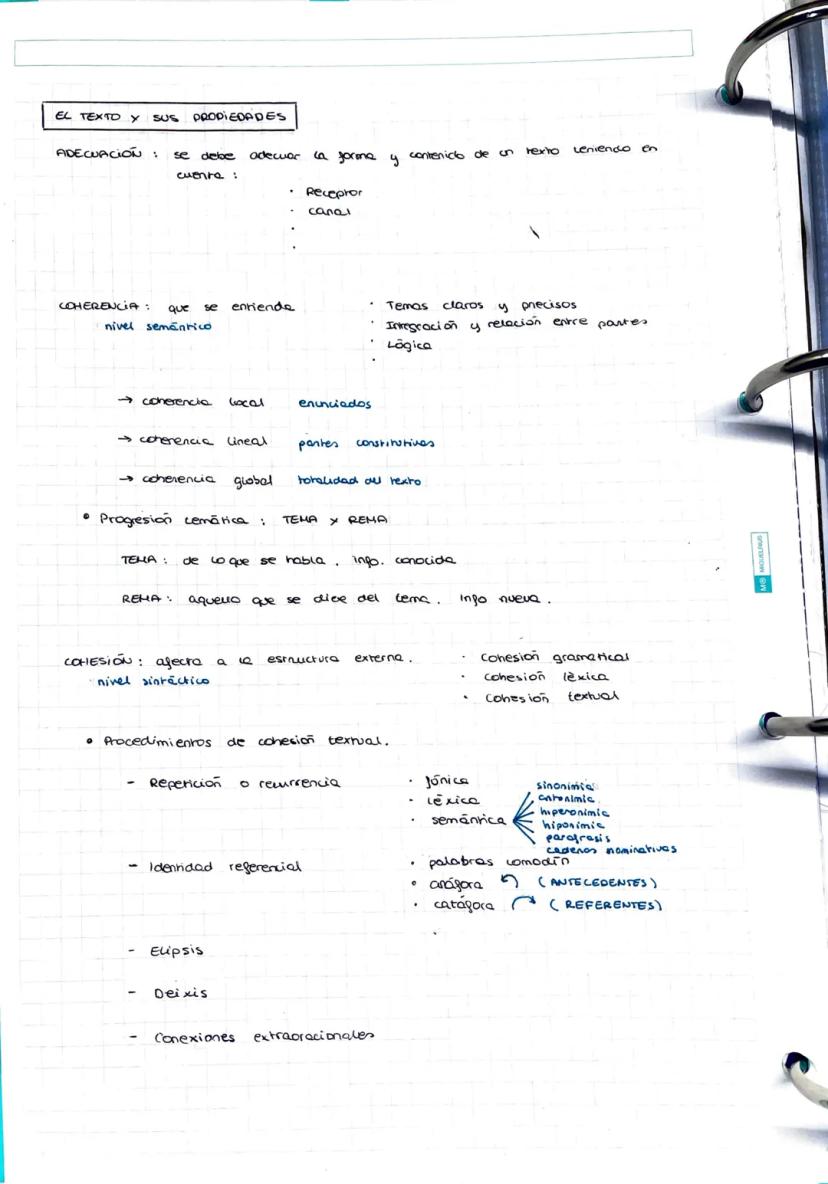 EL TEXTO Y SUS PROPIEDADES
ADECUACIÓN : se debe adecuar la forma y contenido de un texto teniendo en
cuenta :
· Receptor
· canal
·
·
COHERENCIA : que se entienda
nivel semántico
· Temas claros y precisos
· Integración y relación entre partes
· Lógica
·
→ coherencia local enunciados
→ coherencia lineal partes constitutivas
→ coherencia global totalidad del texto
• Progresión temática : TEMA Y REMA
TEMA : de lo que se habla . info. conocida
REMA : aquello que se dice del tema . Info nueva .
COHESIÓN : afecta a la estructura externa .
nivel sintáctico
· Cohesión gramatical
· cohesión léxica
· Cohesión textual
• Procedimientos de cohesión textual .
- Repetición o recurrencia
· fónica
· léxica
· semántica
sinonimia
antonimia
hiperonimia
hiponimia
parafrasis
cadenas nominativas
- Identidad referencial
· palabras comodín
• anáfora ↶ (ANTECEDENTES)
· catáfora ↷ (REFERENTES)
·
- Elipsis
- Deixis
- Conexiones extraoracionales
MR MIQUELRIUS